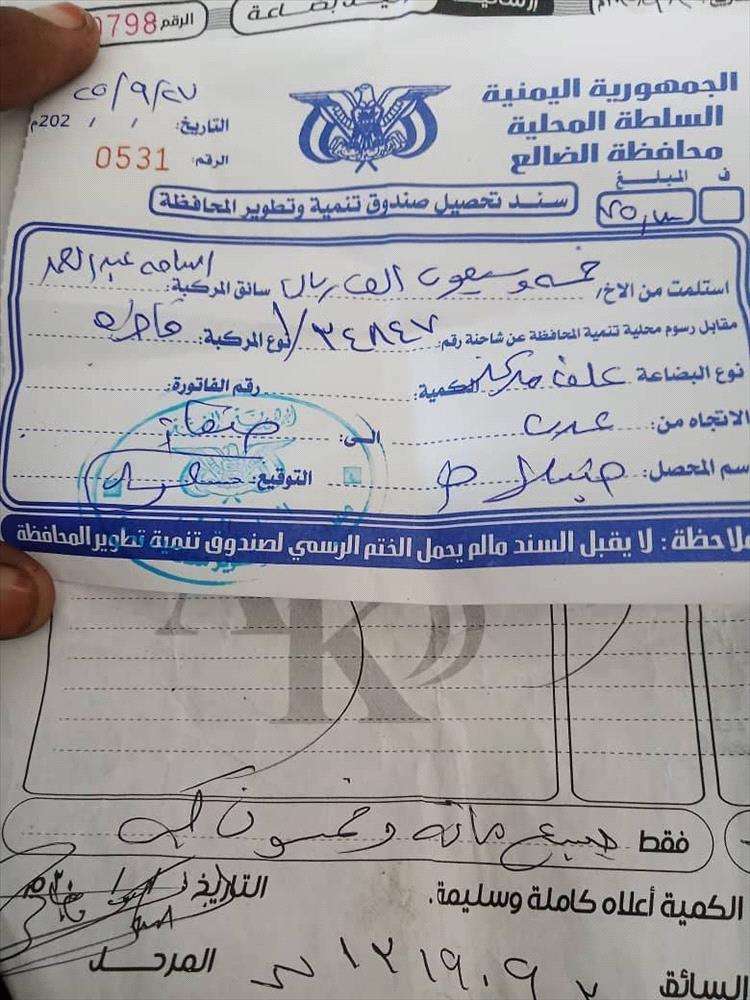 الرقم 0798
الجمهورية اليمنية
السلطة المحلية
محافظة الضالع
٢٥/٩/٢٧
التاريخ: / / 202م
الرقم: 0531
المبلغ
ف
سند تحصيل صندوق تنمية وتطوير المحافظة
استلمت من الاخ/ خمسة وسبعون الف ريال سائق المركبة: اسامه عبدالحمد
مقابل رسوم محلية تنمية المحافظة عن شاحنة رقم: ٣٤٨٤٧/١ نوع المركبة: قاطره
نوع البضاعة علف مركز الكمية: رقم الفاتورة:
الاتجاه من: عدن الى: صنعاء
سم المحصل: التوقيع:
ملاحظة: لا يقبل السند مالم يحمل الختم الرسمي لصندوق تنمية تطوير المحافظة
AK
فقط سبع مائه وخمسون
الكمية أعلاه كاملة وسليمة. التاريخ
السائق المرحل